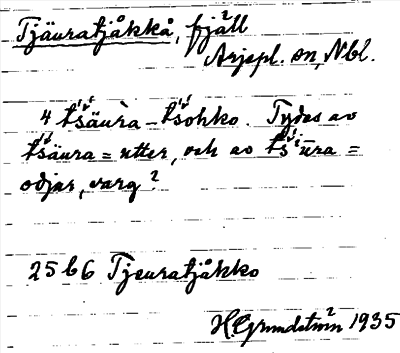 Tjäuratjåkkå, fjäll
Arjepl. sn, Nbl.
4 tšäura - tšohko. Tydes av
tšäura = utter, och av tšūra =
odjur, varg?
25 b 6 Tjeuratjåkko
H Grundström 1935